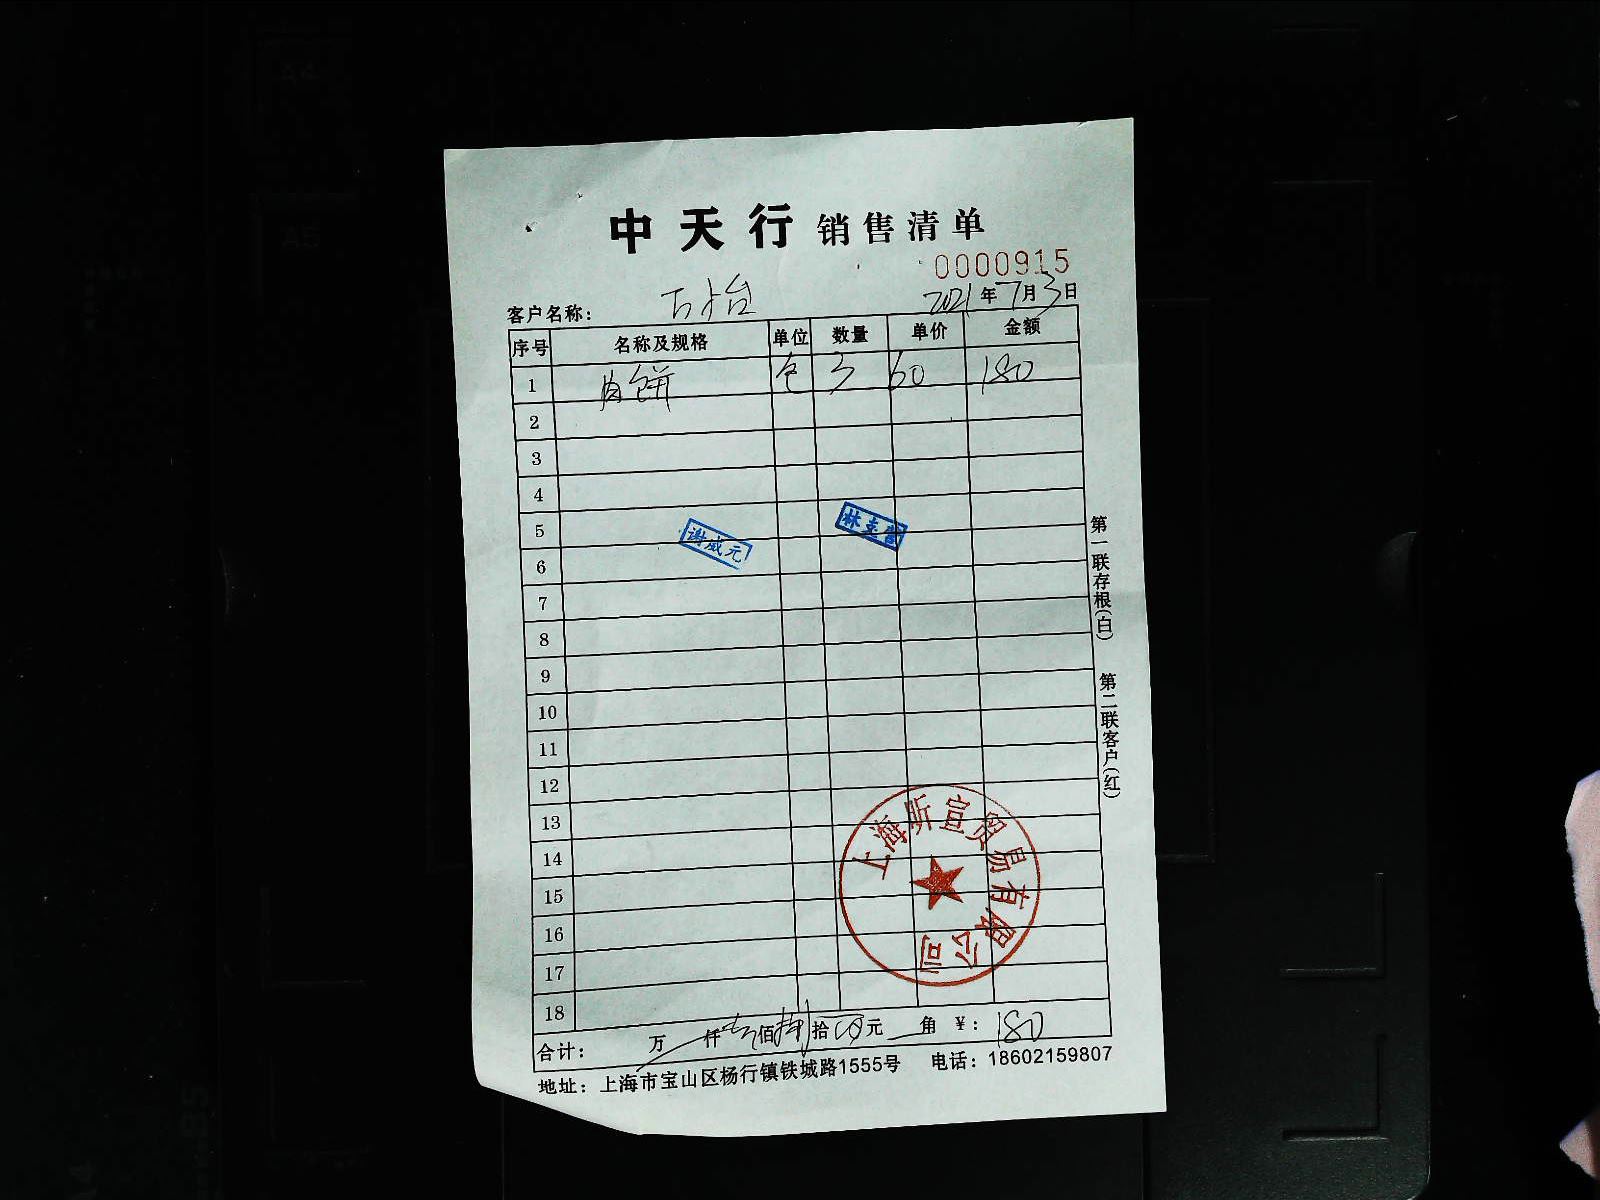 中天行 销售清单
0000915
客户名称： 2021年7月3日
序号 名称及规格 单位 数量 单价 金额
1 肉饼 包 3 60 180
2
3
4
5
谢威元
6
7
8
9
10
11
12
13
14
15
16
17
18
上海昕宣贸易有限公司
合计： 万 仟 壹佰捌拾 元 角 ￥：180
地址：上海市宝山区杨行镇铁城路1555号 电话：18602159807
第一联存根(白) 第二联客户(红)